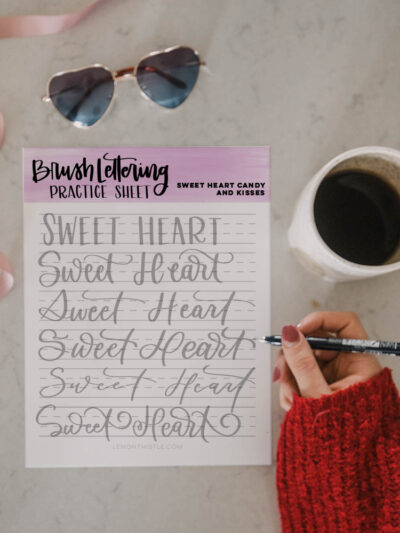 Brush Lettering
PRACTICE SHEET
SWEET HEART CANDY
AND KISSES
SWEET HEART
Sweet Heart
Sweet Heart
Sweet Heart
Sweet Heart
Sweet Heart
LEMONTHISTLE.COM